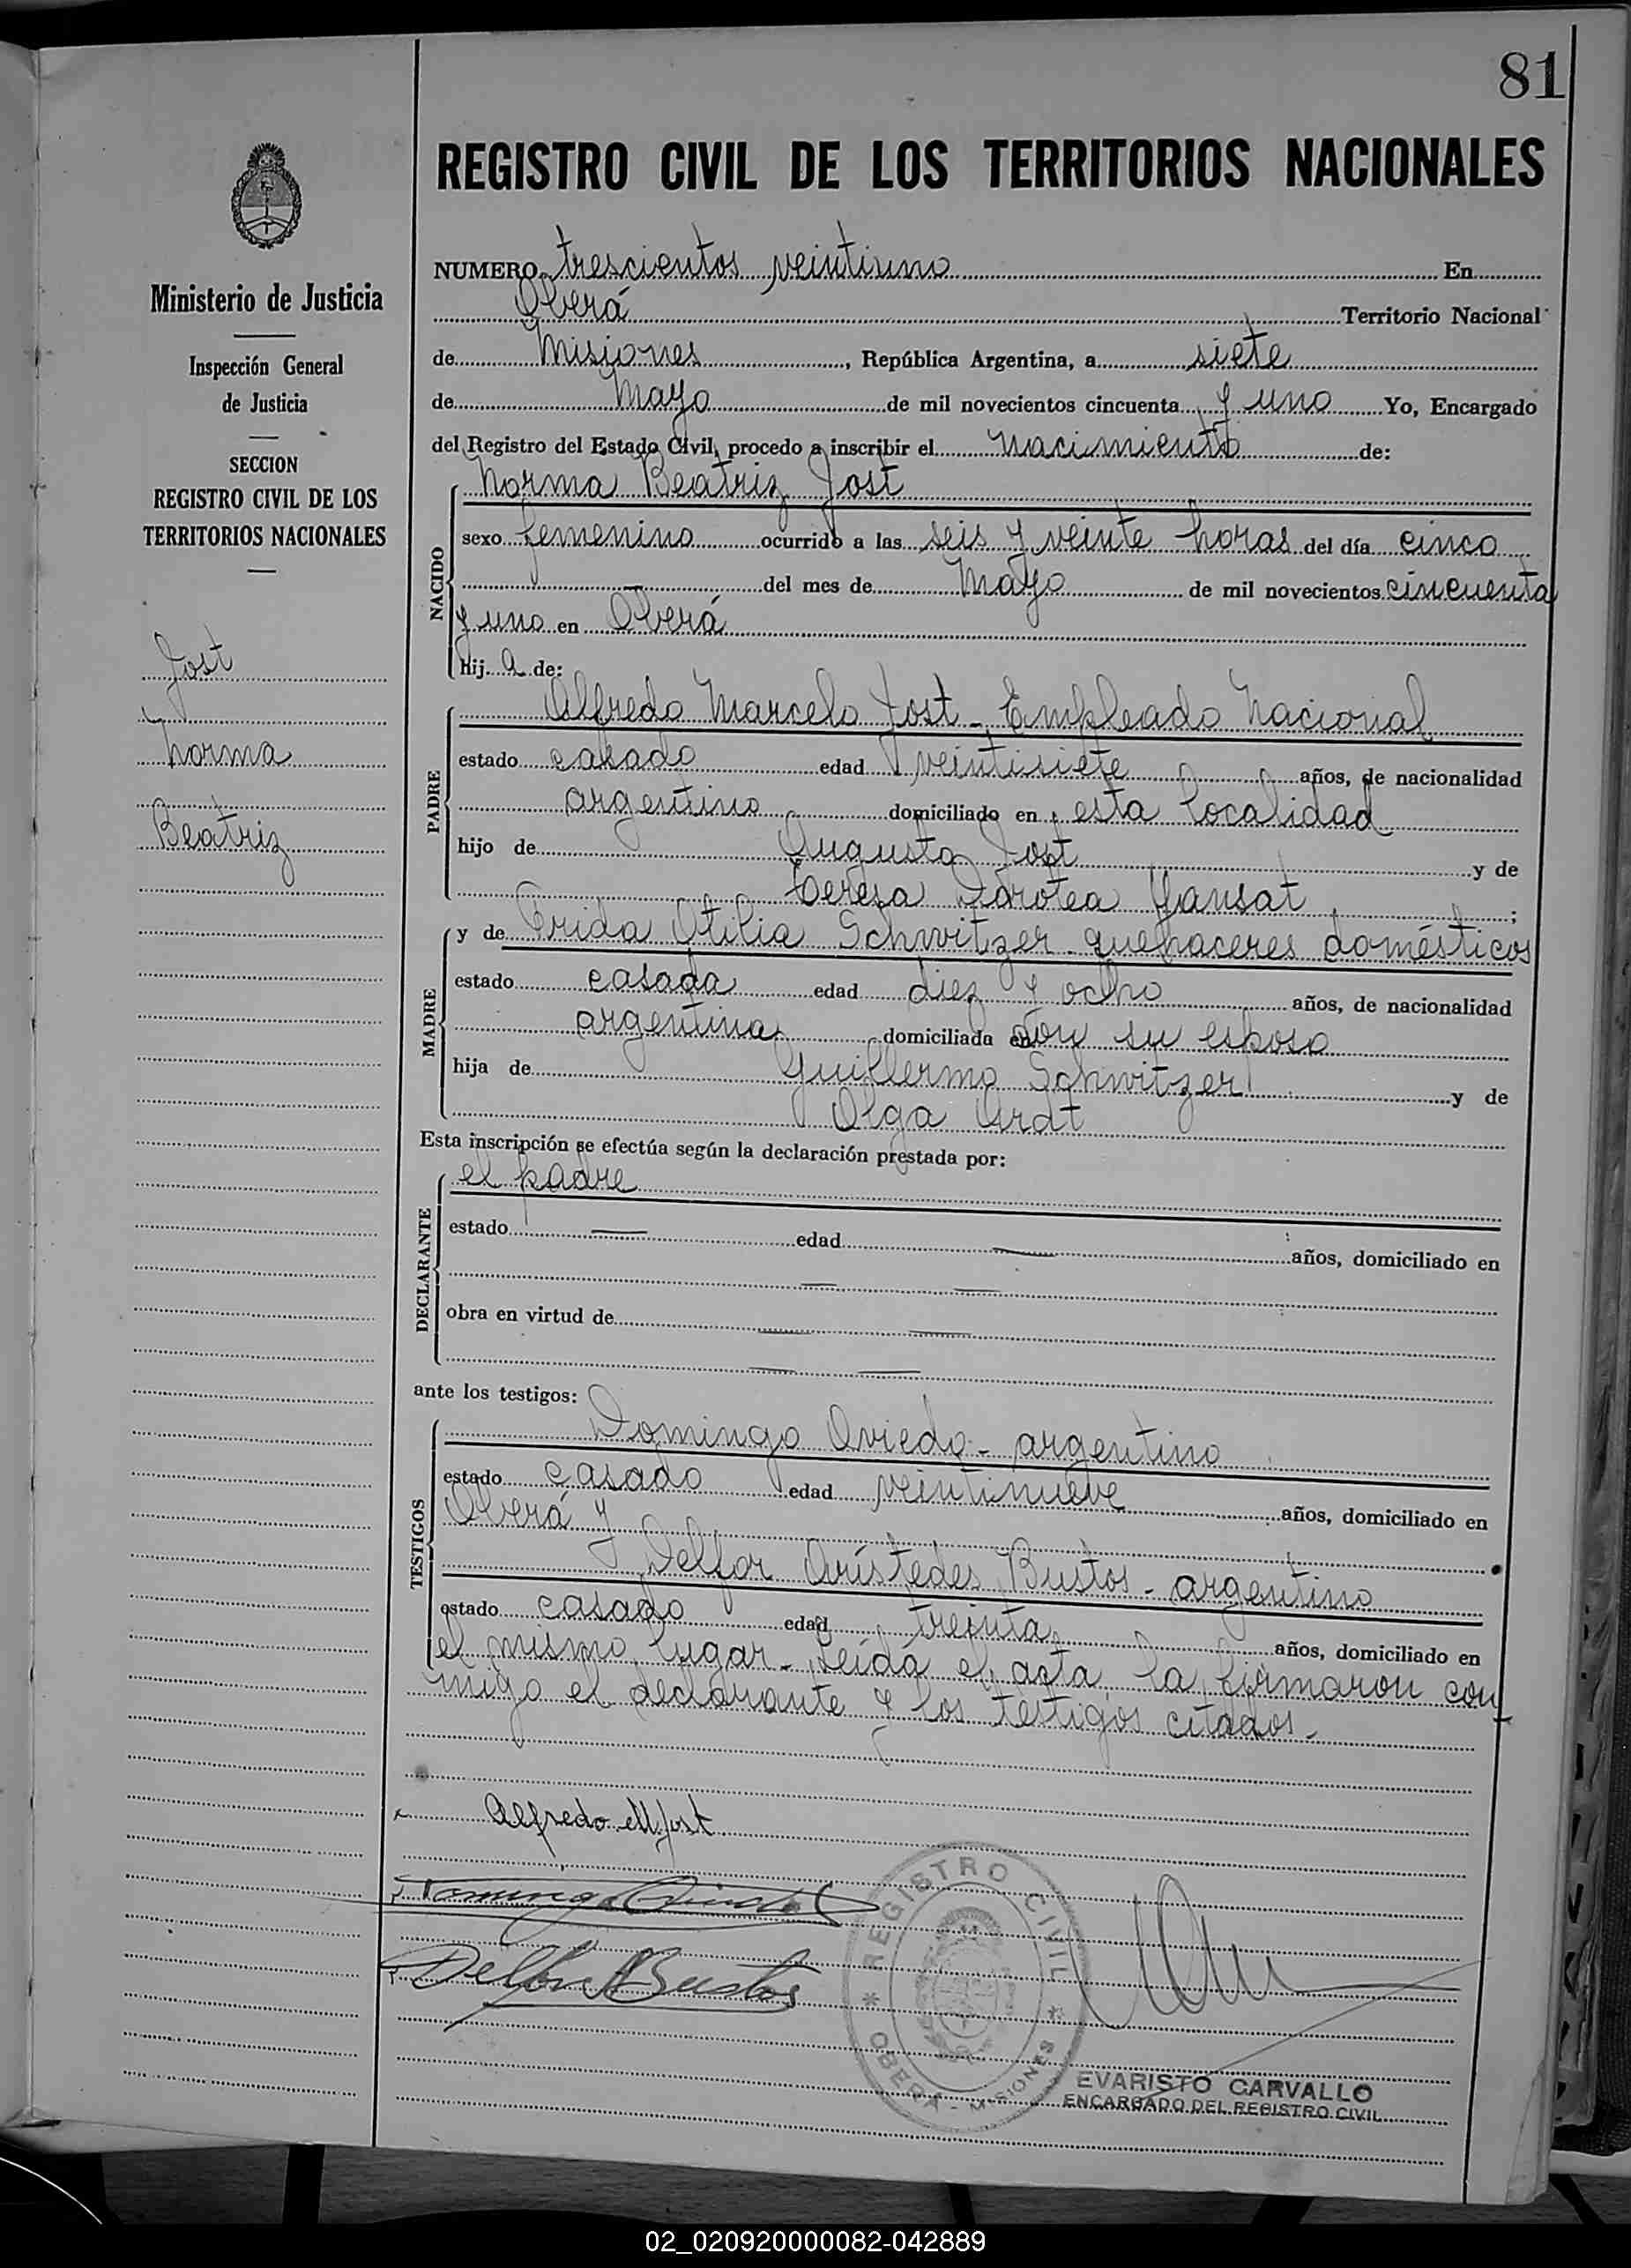 81
REGISTRO CIVIL DE LOS TERRITORIOS NACIONALES
Ministerio de Justicia
Inspección General
de Justicia
SECCION
REGISTRO CIVIL DE LOS
TERRITORIOS NACIONALES
Jost
Norma
Beatriz
NUMERO trescientos veintiuno En
Oberá Territorio Nacional
de Misiones, República Argentina, a siete
de Mayo de mil novecientos cincuenta y uno Yo, Encargado
del Registro del Estado Civil, procedo a inscribir el nacimiento de:
NACIDO
Norma Beatriz Jost
sexo femenino ocurrido a las seis y veinte horas del día cinco
del mes de Mayo de mil novecientos cincuenta
y uno en Oberá
hij a de:
PADRE
Alfredo Marcelo Jost - Empleado Nacional
estado casado edad veintisiete años, de nacionalidad
argentino domiciliado en esta localidad
hijo de Augusto Jost y de
Teresa Dorotea Yansat;
MADRE
y de Frida Otilia Schwitzer - quehaceres domésticos
estado casada edad diez y ocho años, de nacionalidad
argentina domiciliada con su esposo
hija de Guillermo Schwitzer y de
Olga Ardt
Esta inscripción se efectúa según la declaración prestada por:
DECLARANTE
el padre
estado — edad — años, domiciliado en
— —
obra en virtud de — —
— —
ante los testigos:
TESTIGOS
Domingo Oviedo - argentino
estado casado edad veintinueve años, domiciliado en
Oberá y
Delfor Arístedes Bustos - argentino
estado casado edad treinta años, domiciliado en
el mismo lugar - Leída el acta, la firmaron con
migo el declarante y los testigos citados -
Alfredo M Jost
Domingo Oviedo
Delfor A Bustos
REGISTRO CIVIL
* OBERÁ - MISIONES *
EVARISTO CARVALLO
ENCARGADO DEL REGISTRO CIVIL
02_020920000082-042889